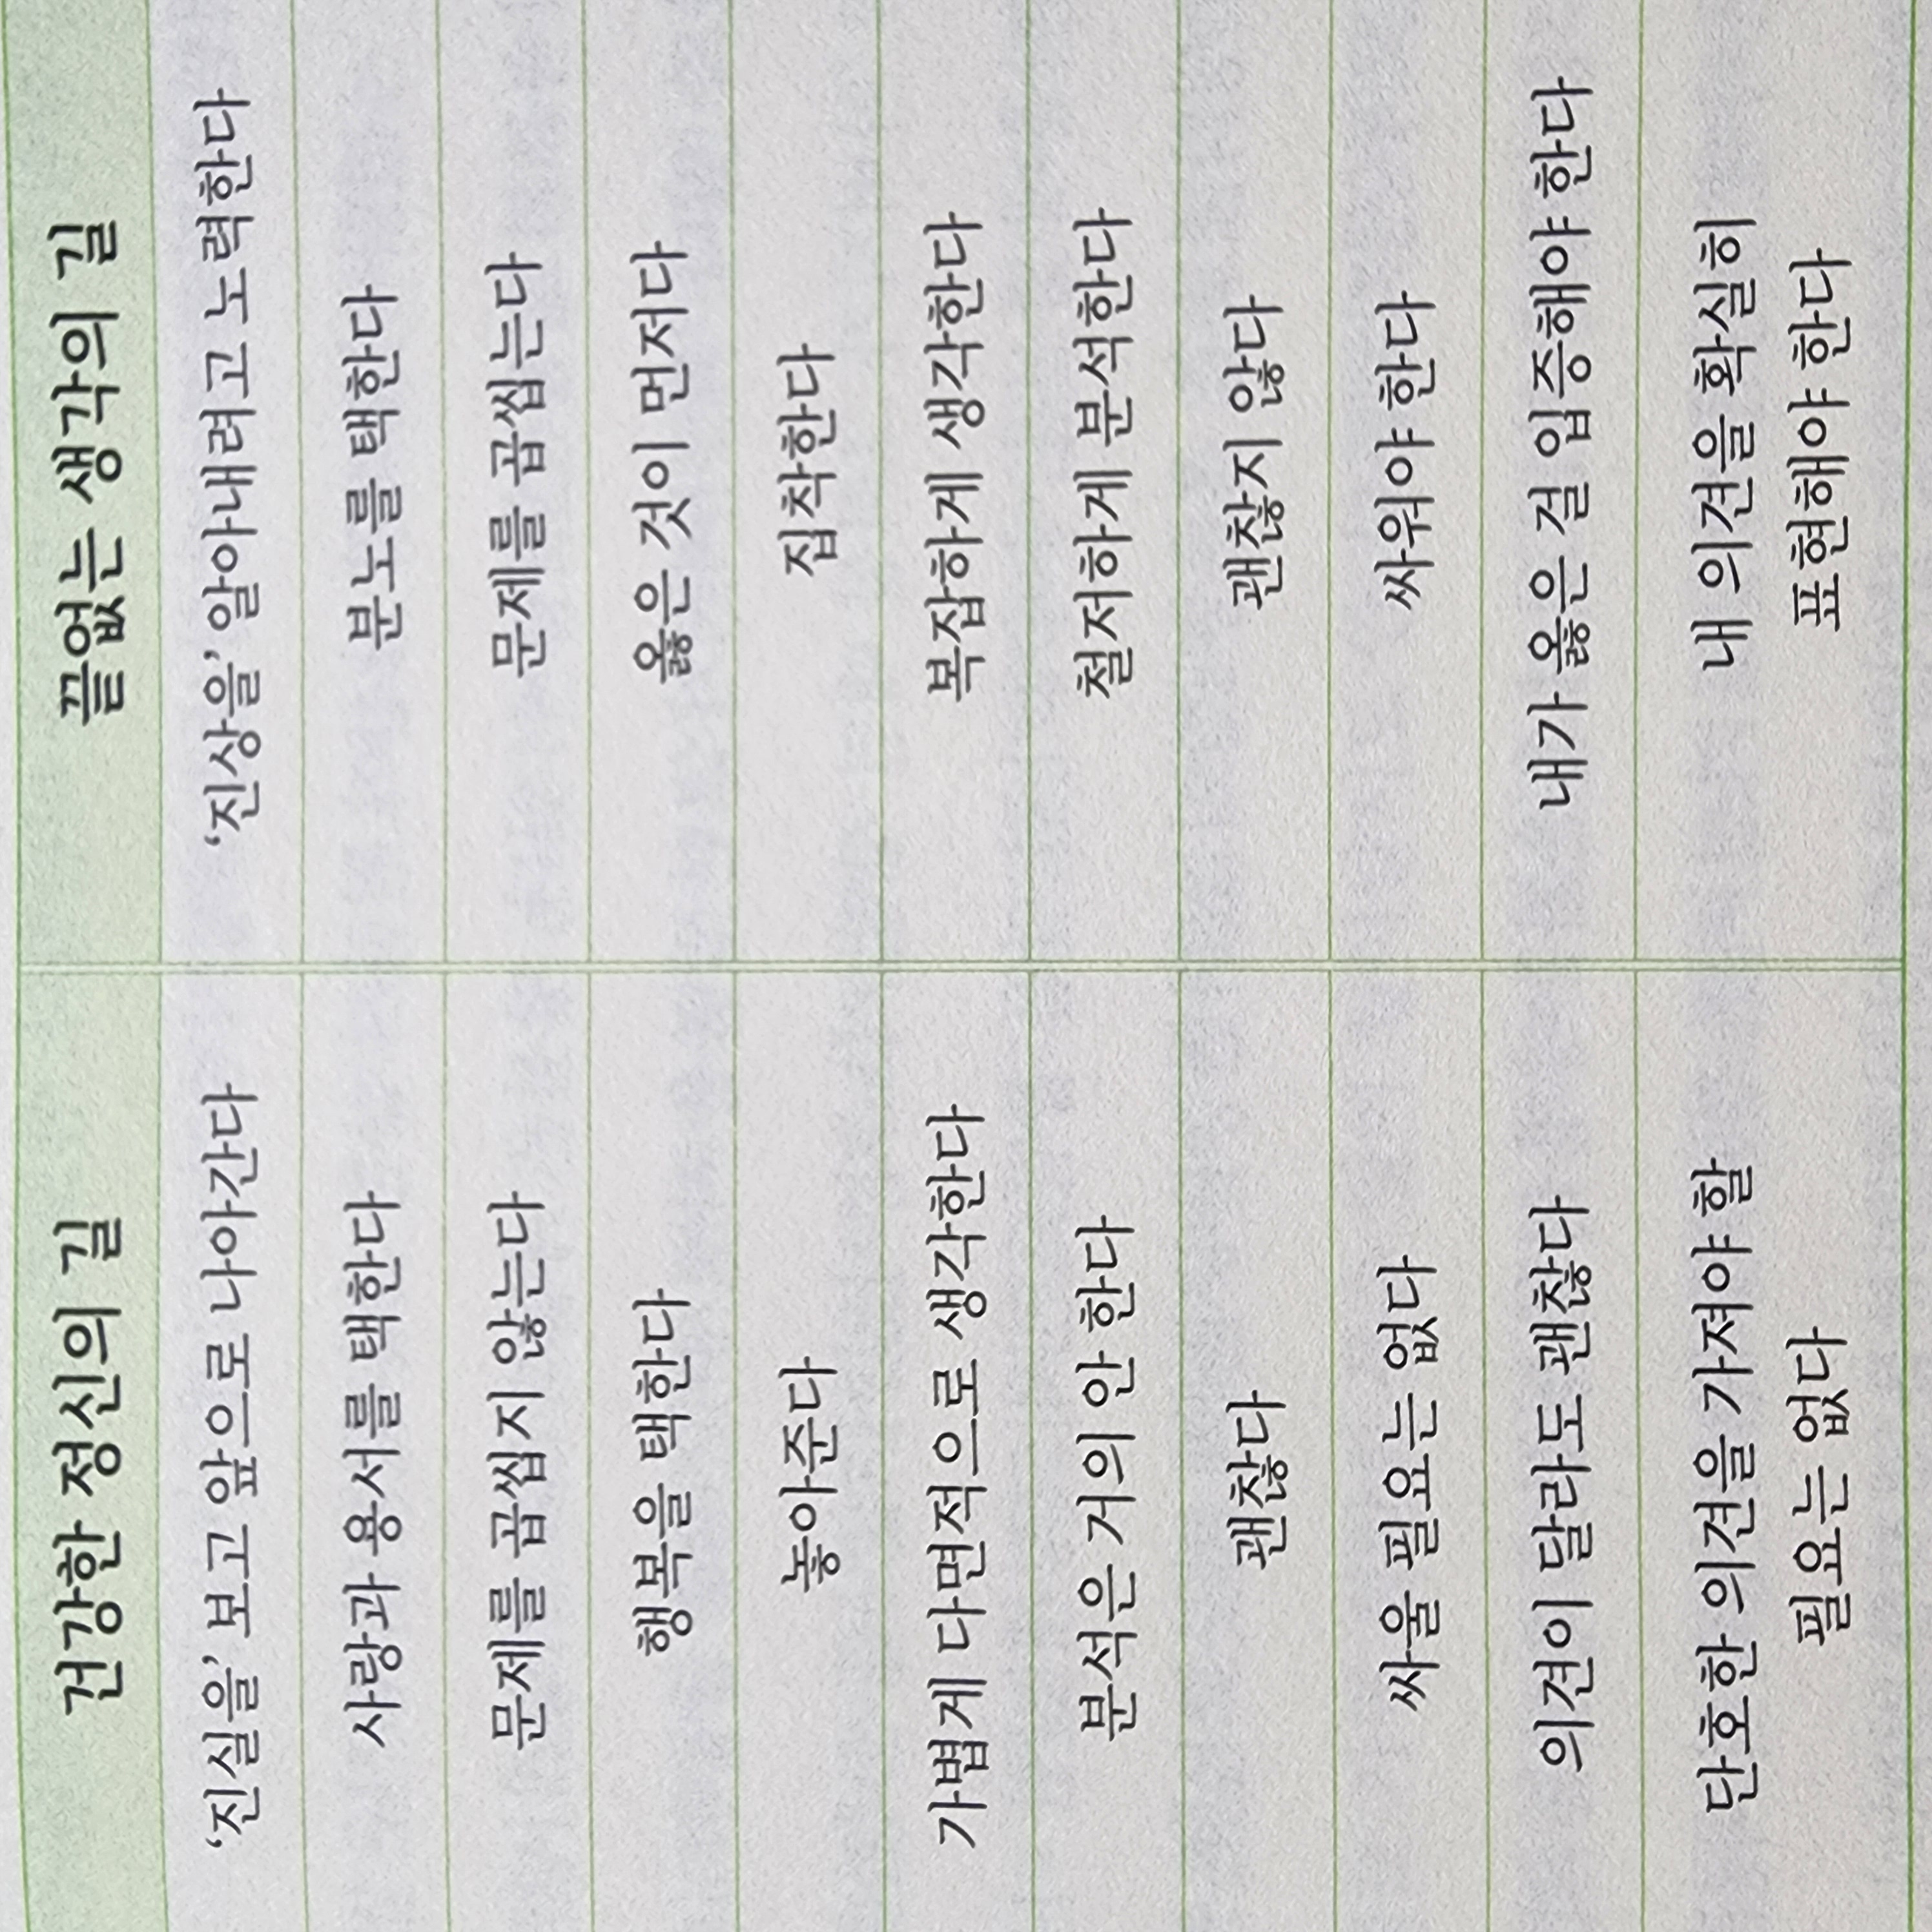 건강한 정신의 길
끝없는 생각의 길
‘진실을’ 보고 앞으로 나아간다
‘진상을’ 알아내려고 노력한다
사랑과 용서를 택한다
분노를 택한다
문제를 곱씹지 않는다
문제를 곱씹는다
행복을 택한다
옳은 것이 먼저다
놓아준다
집착한다
가볍게 다면적으로 생각한다
복잡하게 생각한다
분석은 거의 안 한다
철저하게 분석한다
괜찮다
괜찮지 않다
싸울 필요는 없다
싸워야 한다
의견이 달라도 괜찮다
내가 옳은 걸 입증해야 한다
단호한 의견을 가져야 할
필요는 없다
내 의견을 확실히
표현해야 한다